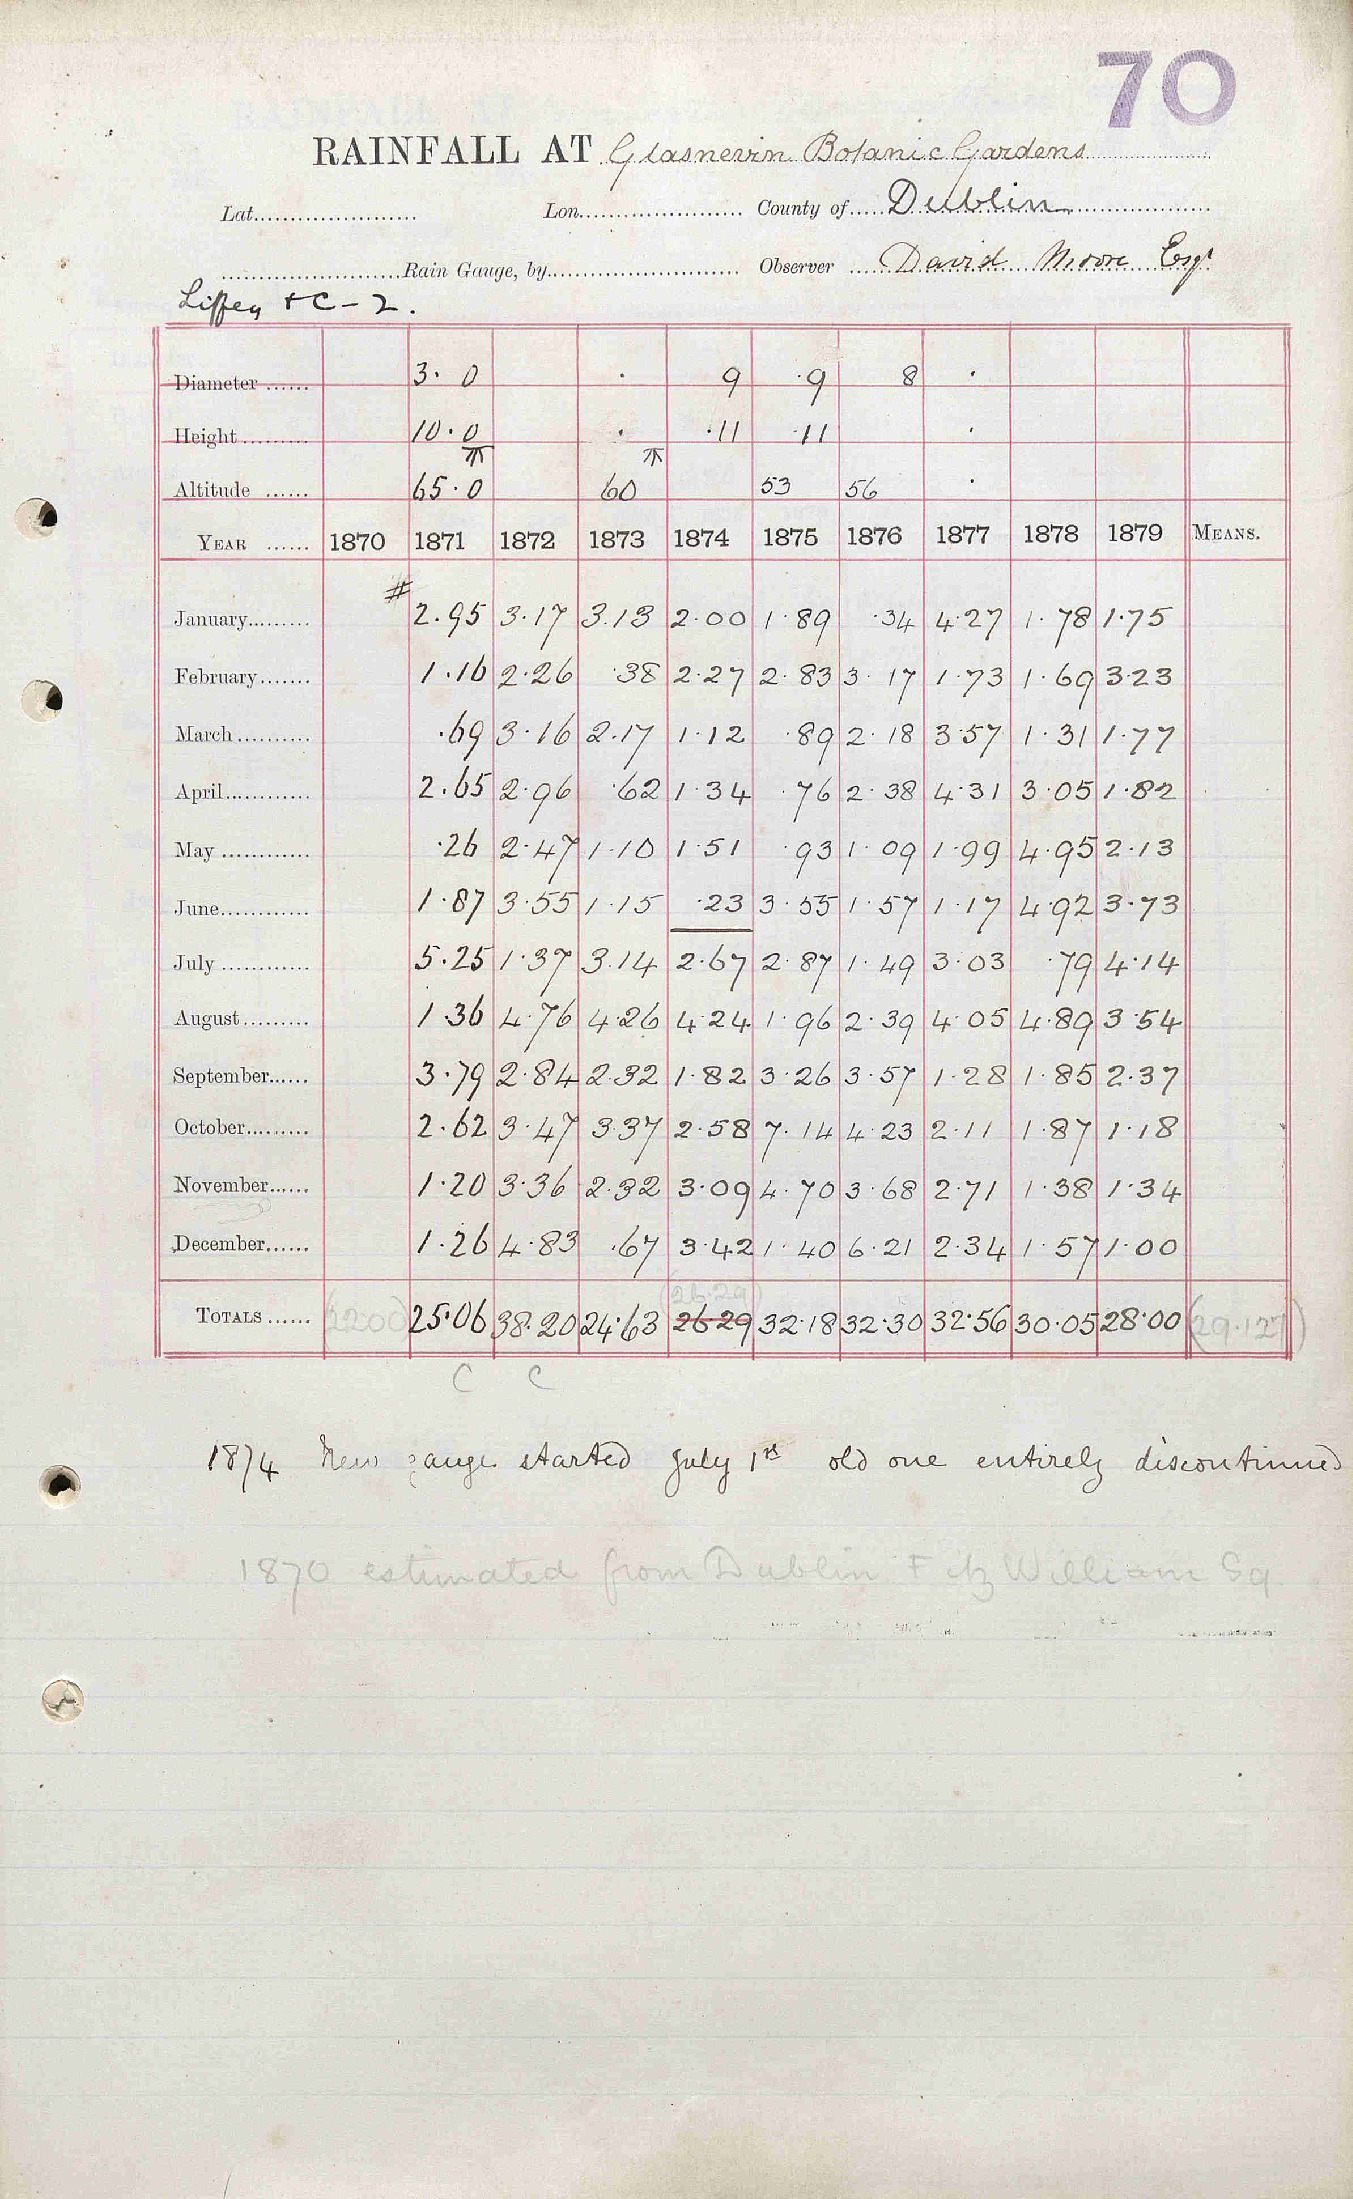 70
RAINFALL AT Glasnevin Botanic Gardens
Lat. Lon. County of Dublin
Rain Gauge, by Observer David Moore Esqr
Liffey &C - 2.
Diameter 3.0 . 9 .9 8 .
Height 10.0 . .11 .11 .
Altitude 65.0 60 53 56 .
YEAR 1870 1871 1872 1873 1874 1875 1876 1877 1878 1879 MEANS.
#
January 2.95 3.17 3.13 2.00 1.89 .34 4.27 1.78 1.75
February 1.16 2.26 .38 2.27 2.83 3.17 1.73 1.69 3.23
March .69 3.16 2.17 1.12 .89 2.18 3.57 1.31 1.77
April 2.65 2.96 .62 1.34 .76 2.38 4.31 3.05 1.82
May .26 2.47 1.10 1.51 .93 1.09 1.99 4.95 2.13
June 1.87 3.55 1.15 .23 3.55 1.57 1.17 4.92 3.73
July 5.25 1.37 3.14 2.67 2.87 1.49 3.03 .79 4.14
August 1.36 4.76 4.26 4.24 1.96 2.39 4.05 4.89 3.54
September 3.79 2.84 2.32 1.82 3.26 3.57 1.28 1.85 2.37
October 2.62 3.47 3.37 2.58 7.14 4.23 2.11 1.87 1.18
November 1.20 3.36 2.32 3.09 4.70 3.68 2.71 1.38 1.34
December 1.26 4.83 .67 3.42 1.40 6.21 2.34 1.57 1.00
(26.29)
TOTALS (22.00) 25.06 38.20 24.63 26.29 32.18 32.30 32.56 30.05 28.00 (29.127)
C C
1874 New gauge started July 1st old one entirely discontinued
1870 estimated from Dublin FitzWilliam Sq